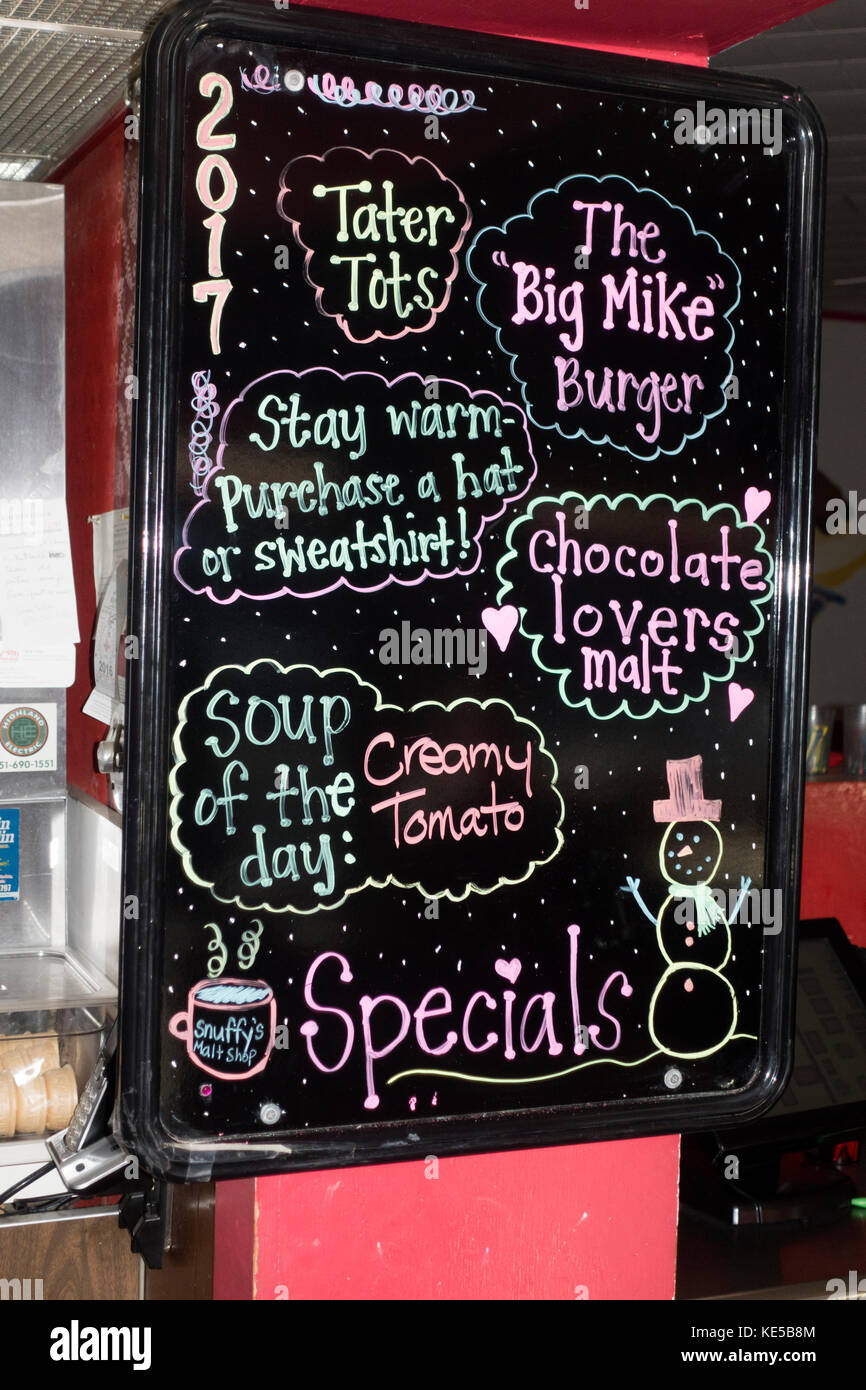 2017
Tater
Tots
The
"Big Mike"
Burger
Stay warm-
Purchase a hat
or sweatshirt!
Chocolate
lovers
malt
Soup
of the
day:
Creamy
Tomato
Snuffy's
Malt Shop
Specials
HIGHLAND
ELECTRIC
51-690-1551
2016
alamy
Image ID: KE5B8M
www.alamy.com